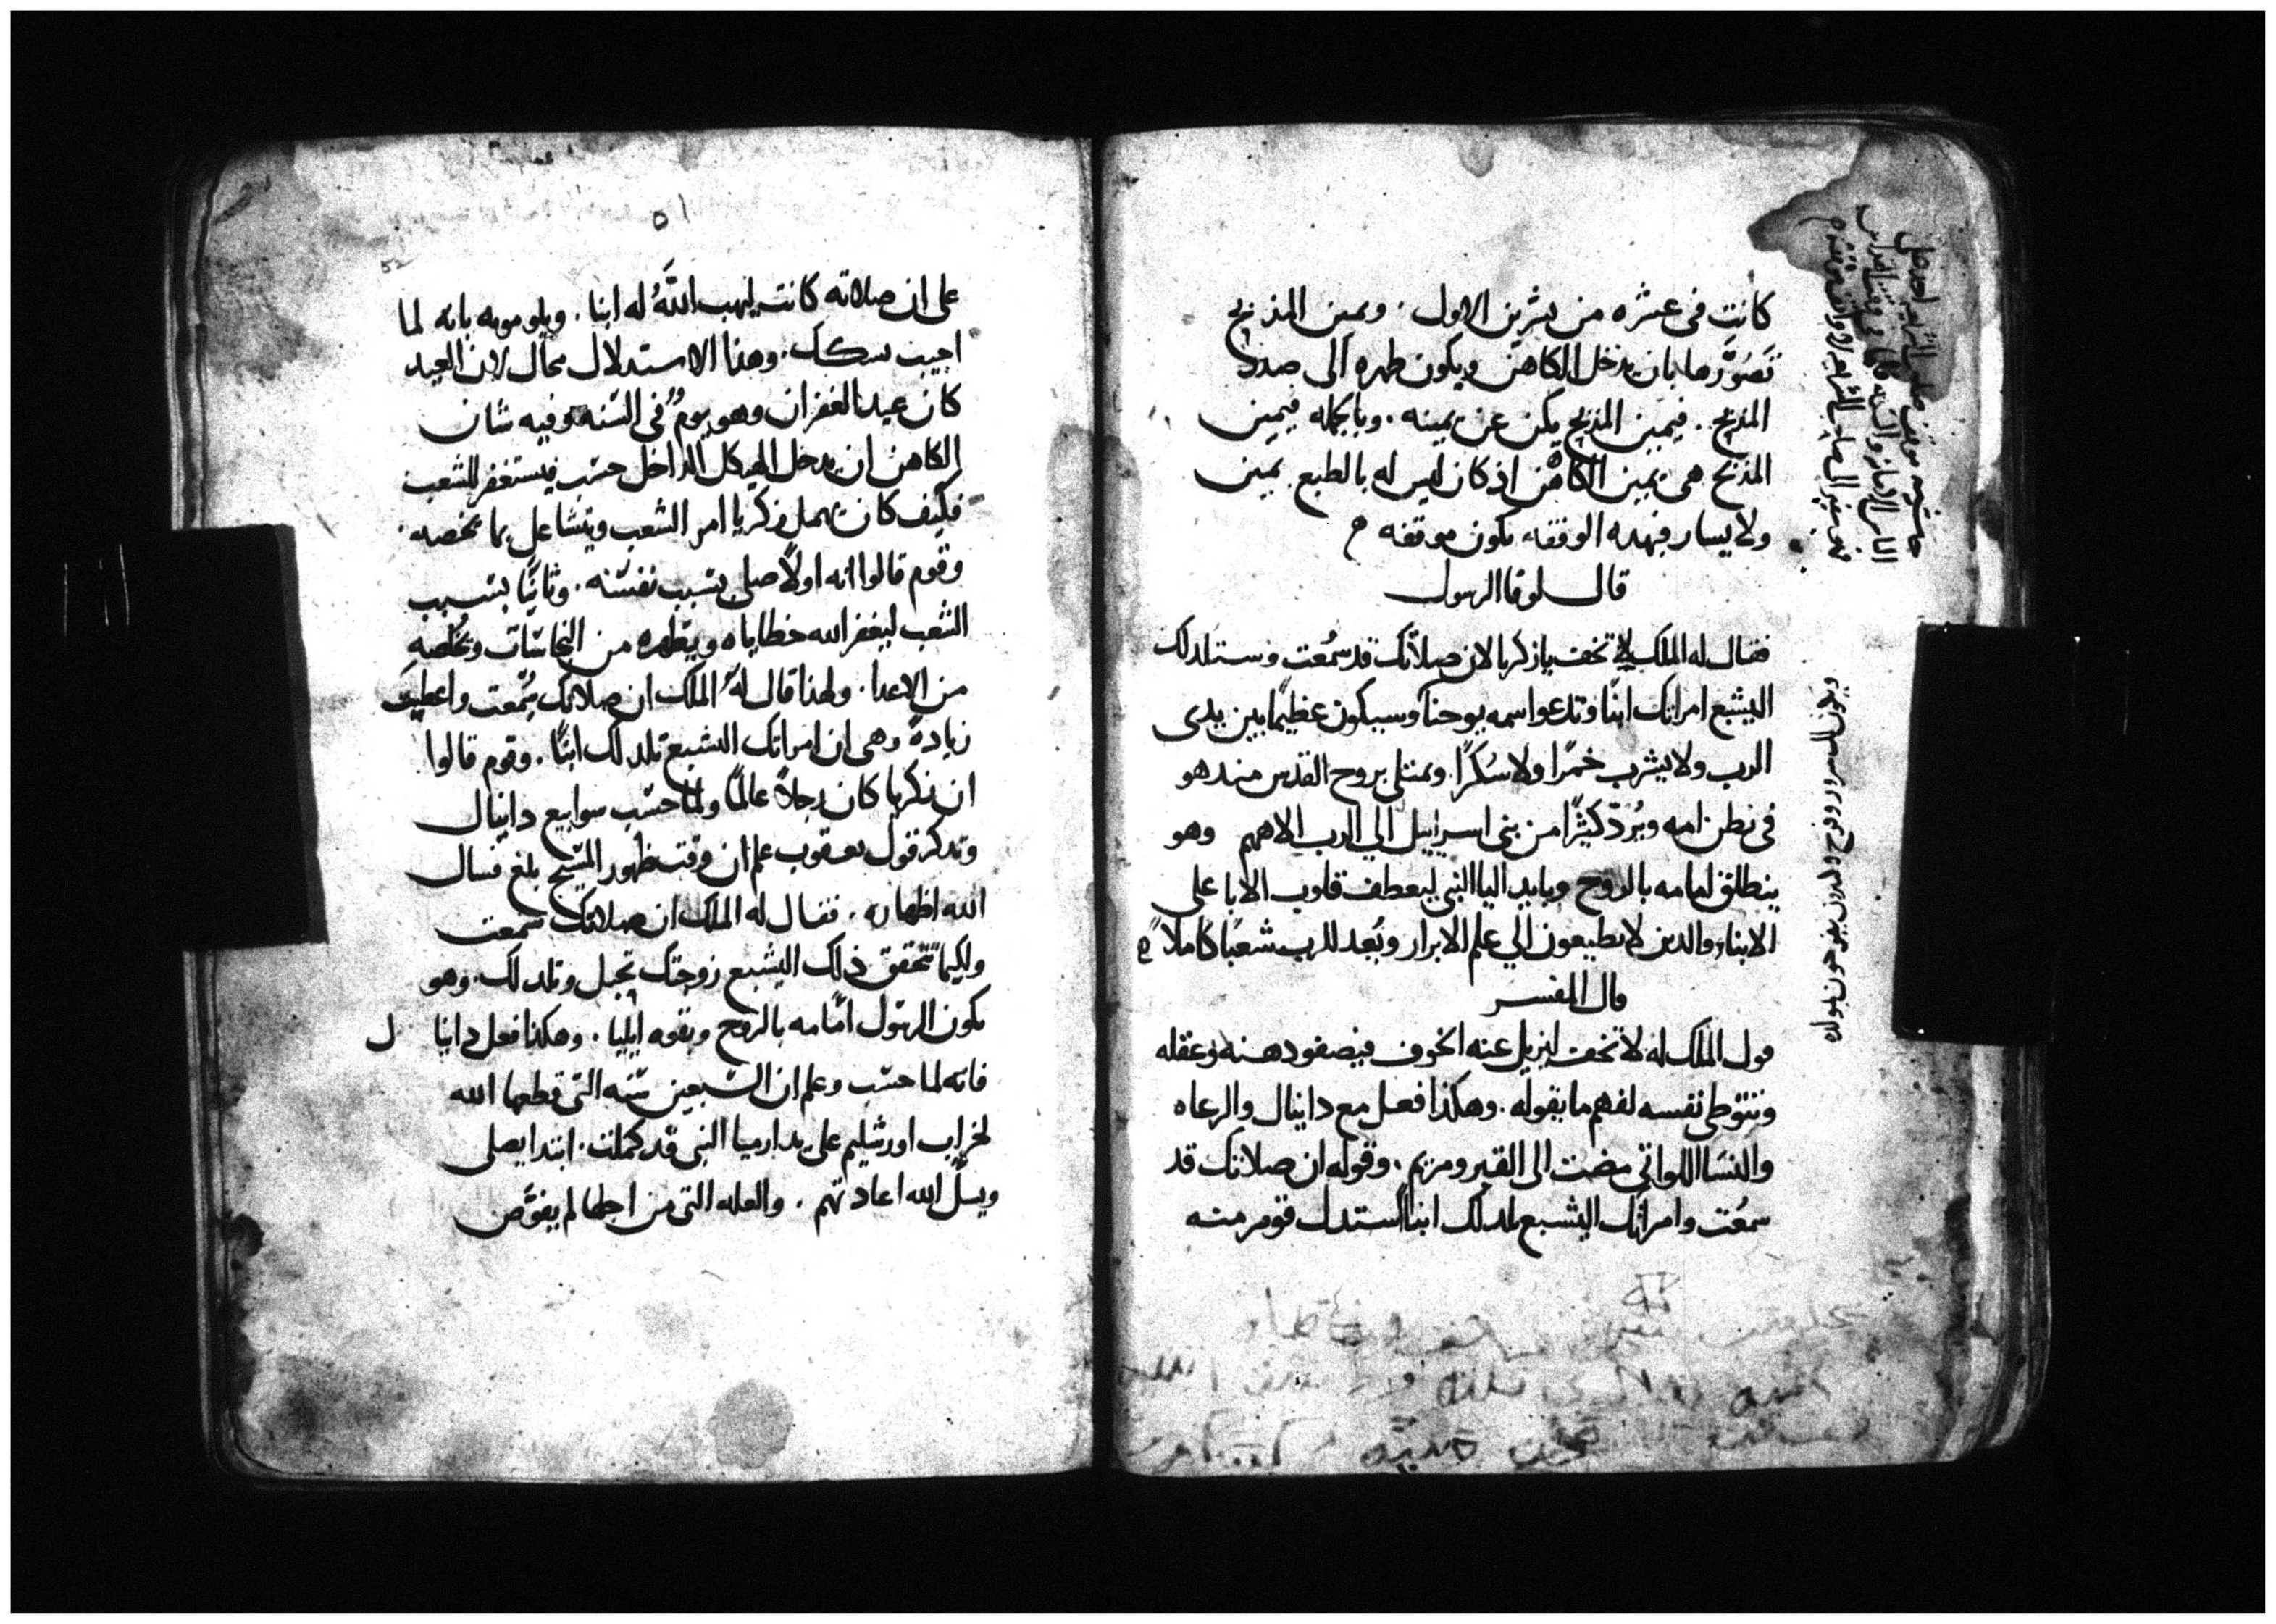 كانت فى عشره من تشرين الاول . ويمين المذبح
تَصَوَّرها بان يدخل الكاهن ويكون ظهره الى صدر
المذبح . فيمين المذبح يكن عن يمينه . وبالجمله فيمين
المذبح هى يمين الكاهن اذ كان ليس له بالطبع يمين
ولا يسار فبهده الوقفه تكون موقفه
قال لوقا الرسول
فقال له الملك لا تخف يا زكريا لان صلاتك قد سُمعت وستلد لك
اليشبع امراتك ابنًا وتدعوا اسمه يوحنا وسيكون عظيمًا بين يدى
الرب ولا يشرب خمرًا ولا سُكرًا . ويمتلى بروح القدس مند هو
فى بطن امه ويُردّ كثيرًا من بنى اسراييل الي الرب الاههم وهو
ينطلق امامه بالروح وبايد اليا النبى ليعطف قلوب الابا على
الابناء والدين لا يطيعون الي علم الابرار ويُعد للرب شعبًا كاملاً
قال المفسر
قول الملك له لا تخف ليزيل عنه الخوف فيصفو دهنه وعقله
وتتوطى نفسه لفهم ما يقوله . وهكذا فعل مع دانيال والرعاه
والنسَا اللواتي مضت الى القبر ومريم . وقوله ان صلاتك قد
سمعُت وامراتك اليشبع تلد لك ابنًا استدل قوم منه
ويكون لك سرور وفرح وكثيرون يفرحون بمولده
٥١
52
على ان صلاته كانت ليهب اللهُ له ابنا . ويلومونه بانه لما
اجيب شكك . وهذا الاستدلال محال لان العيد
كان عيد الغفران وهو يومٌ فى السّنه وفيه شان
الكاهن ان يدخل الهيكل الداخل حسب فيستغفر للشعب
فكيف كان يهمل زكريا امر الشعب ويتشاغل بما يخصه .
وقوم قالوا انه اولاً صلى بسبب نفسّه . وثانيًا بسبب
الشعب ليغفر الله خطاياه ويطهره من النجاسّات ويخلصه
من الاعدا . ولهذا قال لهُ الملك ان صلاتك سُمّعت واعطيت
زيادةً وهى ان امراتك اليشبع تلد لك ابنًا . وقوم قالوا
ان زكريا كان رجلاً عالمًا ولمّا حسّب سوابيع دانيال
وتدكر قول يعقوب علم ان وقت ظهور المسّيح بلغ فسال
الله اظهاره . فقال له الملك ان صلاتك سمعت
ولكيما تتحقق ذلك اليشبع زوجتك تحبل وتلد لك . وهو
يكون الرسّول امامه بالروح وبقوه ايليا . وهكذا فعل دانيال
فانه لما حسّب وعلم ان السّبعين سّنه التى قطعها الله
لخراب اورشليم على يد ارميا النبى قد كملت . ابتدا يصلى
ويسل الله اعادتهم . والعله التى من اجلها لم يفوّض